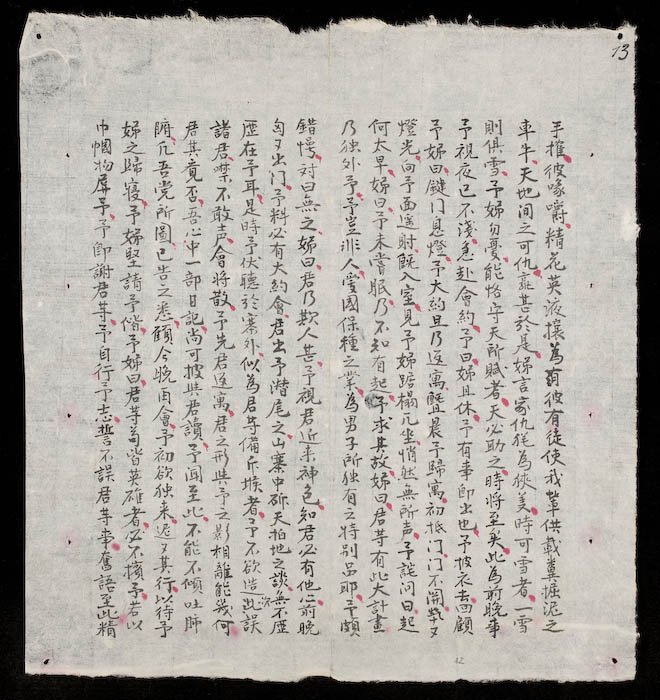 13
手摧彼喙嚼精花英液攘為蒭彼有徒使我輩供載糞掘泥之
車牛天地間之可仇讎甚於是婦言家仇從為狹美時可雪者一雪
則俱雪予婦勿憂能恪守天所賦者天必助之時將至矣此為前晚事
予視夜已不淺急赴會約予曰婦且休予有事即出也予披衣去回顧
予婦曰鍵門息燈予大約旦乃返寓旣晨予歸寓初抵門門不開
燈光向予面逕射旣入室見予婦踞榻兀坐悄然無所声予詫問曰起
何太早婦曰予未嘗眠乃不知有起予求其故婦曰君等有此大計畫
乃独外予予豈非人愛國保種之業為男子所独有之特別品耶予頗
錯愕對曰無之婦曰君乃欺人甚予視君近來神色知君必有他心前晚
匆匆出门予料必有大約會君出予潛尾之山寨中斫天拍地之談無不歷
歷在予耳是時予伏聽於寨外似為君等備斥堠者予不欲造次誤
諸君噤不敢声會將散予先君返寓君之形與予之影相離能幾何
君其竟否吾心中一部日記尚可披與君讀予聞至此不能不傾吐肺
腑凢吾党所圖已告之悉顧今晚由會予初欲独来迟又其行以待予
婦之歸寢予婦堅請予偕予婦曰君等苟皆英雄者必不擯予若以
巾幗物屏予予即謝君等予自行予志誓不誤君等事奮語至此精
12